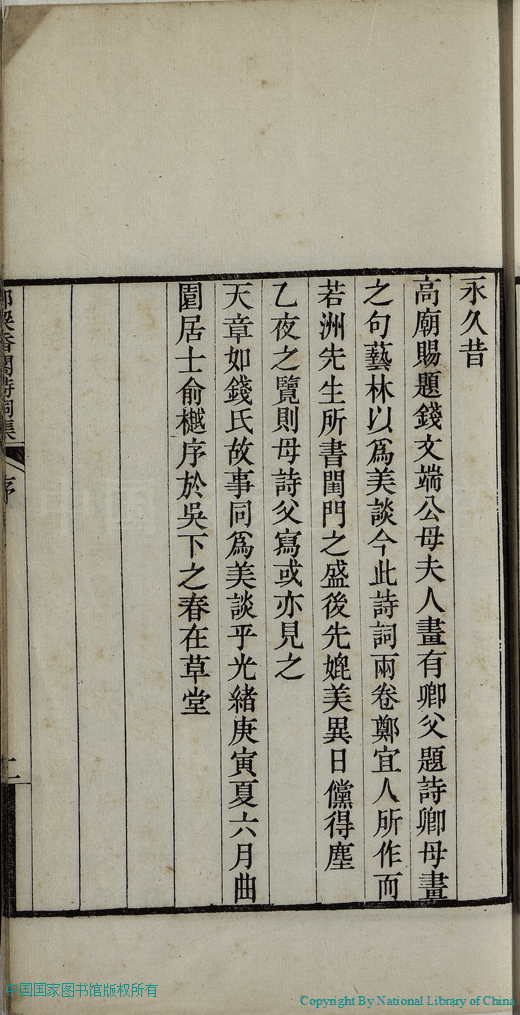 永久昔
高廟賜題錢文端公母夫人畫有卿父題詩卿母畫
之句藝林以爲美談今此詩詞兩卷鄭宜人所作而
若洲先生所書閨門之盛後先媲美異日儻得塵
乙夜之覽則母詩父寫或亦見之
天章如錢氏故事同爲美談乎光緒庚寅夏六月曲
園居士俞樾序於吳下之春在草堂
序
二
中国国家图书馆版权所有
Copyright By National Library of China